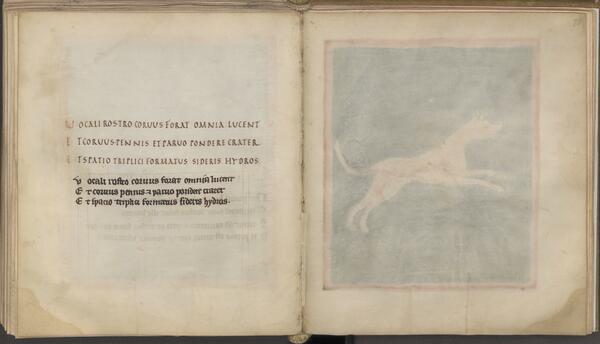 VOCALI ROSTRO CORVUS FORAT OMNIA LUCENT
ET CORVUS PENNIS ET PARVO PONDERE CRATER
ET SPATIO TRIPLICI FORMATUS SIDERIS HYDROS
Vocali rostro corvus forat omnia lucent
Et corvus pennis & parvo pondere crater
Et spacio triplici formatus sideris hydros.